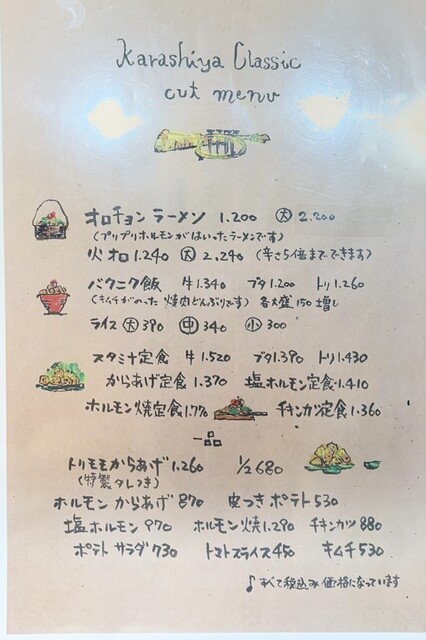 Karashiya Classic
cut menu
オロチョン ラーメン 1.200 大 2.200
(プリプリホルモンがはいったラーメンです)
火オロ 1.240 大 2.240 (辛さ5倍までできます)
バクニク飯 牛 1.340 ブタ 1.200 トリ 1.260
(キムチがのった 焼肉どんぶりです) 各大盛 150増し
ライス 大 390 中 340 小 300
スタミナ定食 牛 1.520 ブタ 1.390 トリ 1.430
からあげ定食 1.370 塩ホルモン定食 1.410
ホルモン焼定食 チキンカツ定食 1.360
一品
トリモモからあげ 1.260 1/2 680
(特製タレつき)
ホルモン からあげ 870 皮つき ポテト 530
塩ホルモン 970 ホルモン焼 1.290 チキンカツ 880
ポテト サラダ 730 トマトスライス 450 キムチ 530
♪ すべて税込み価格になっています